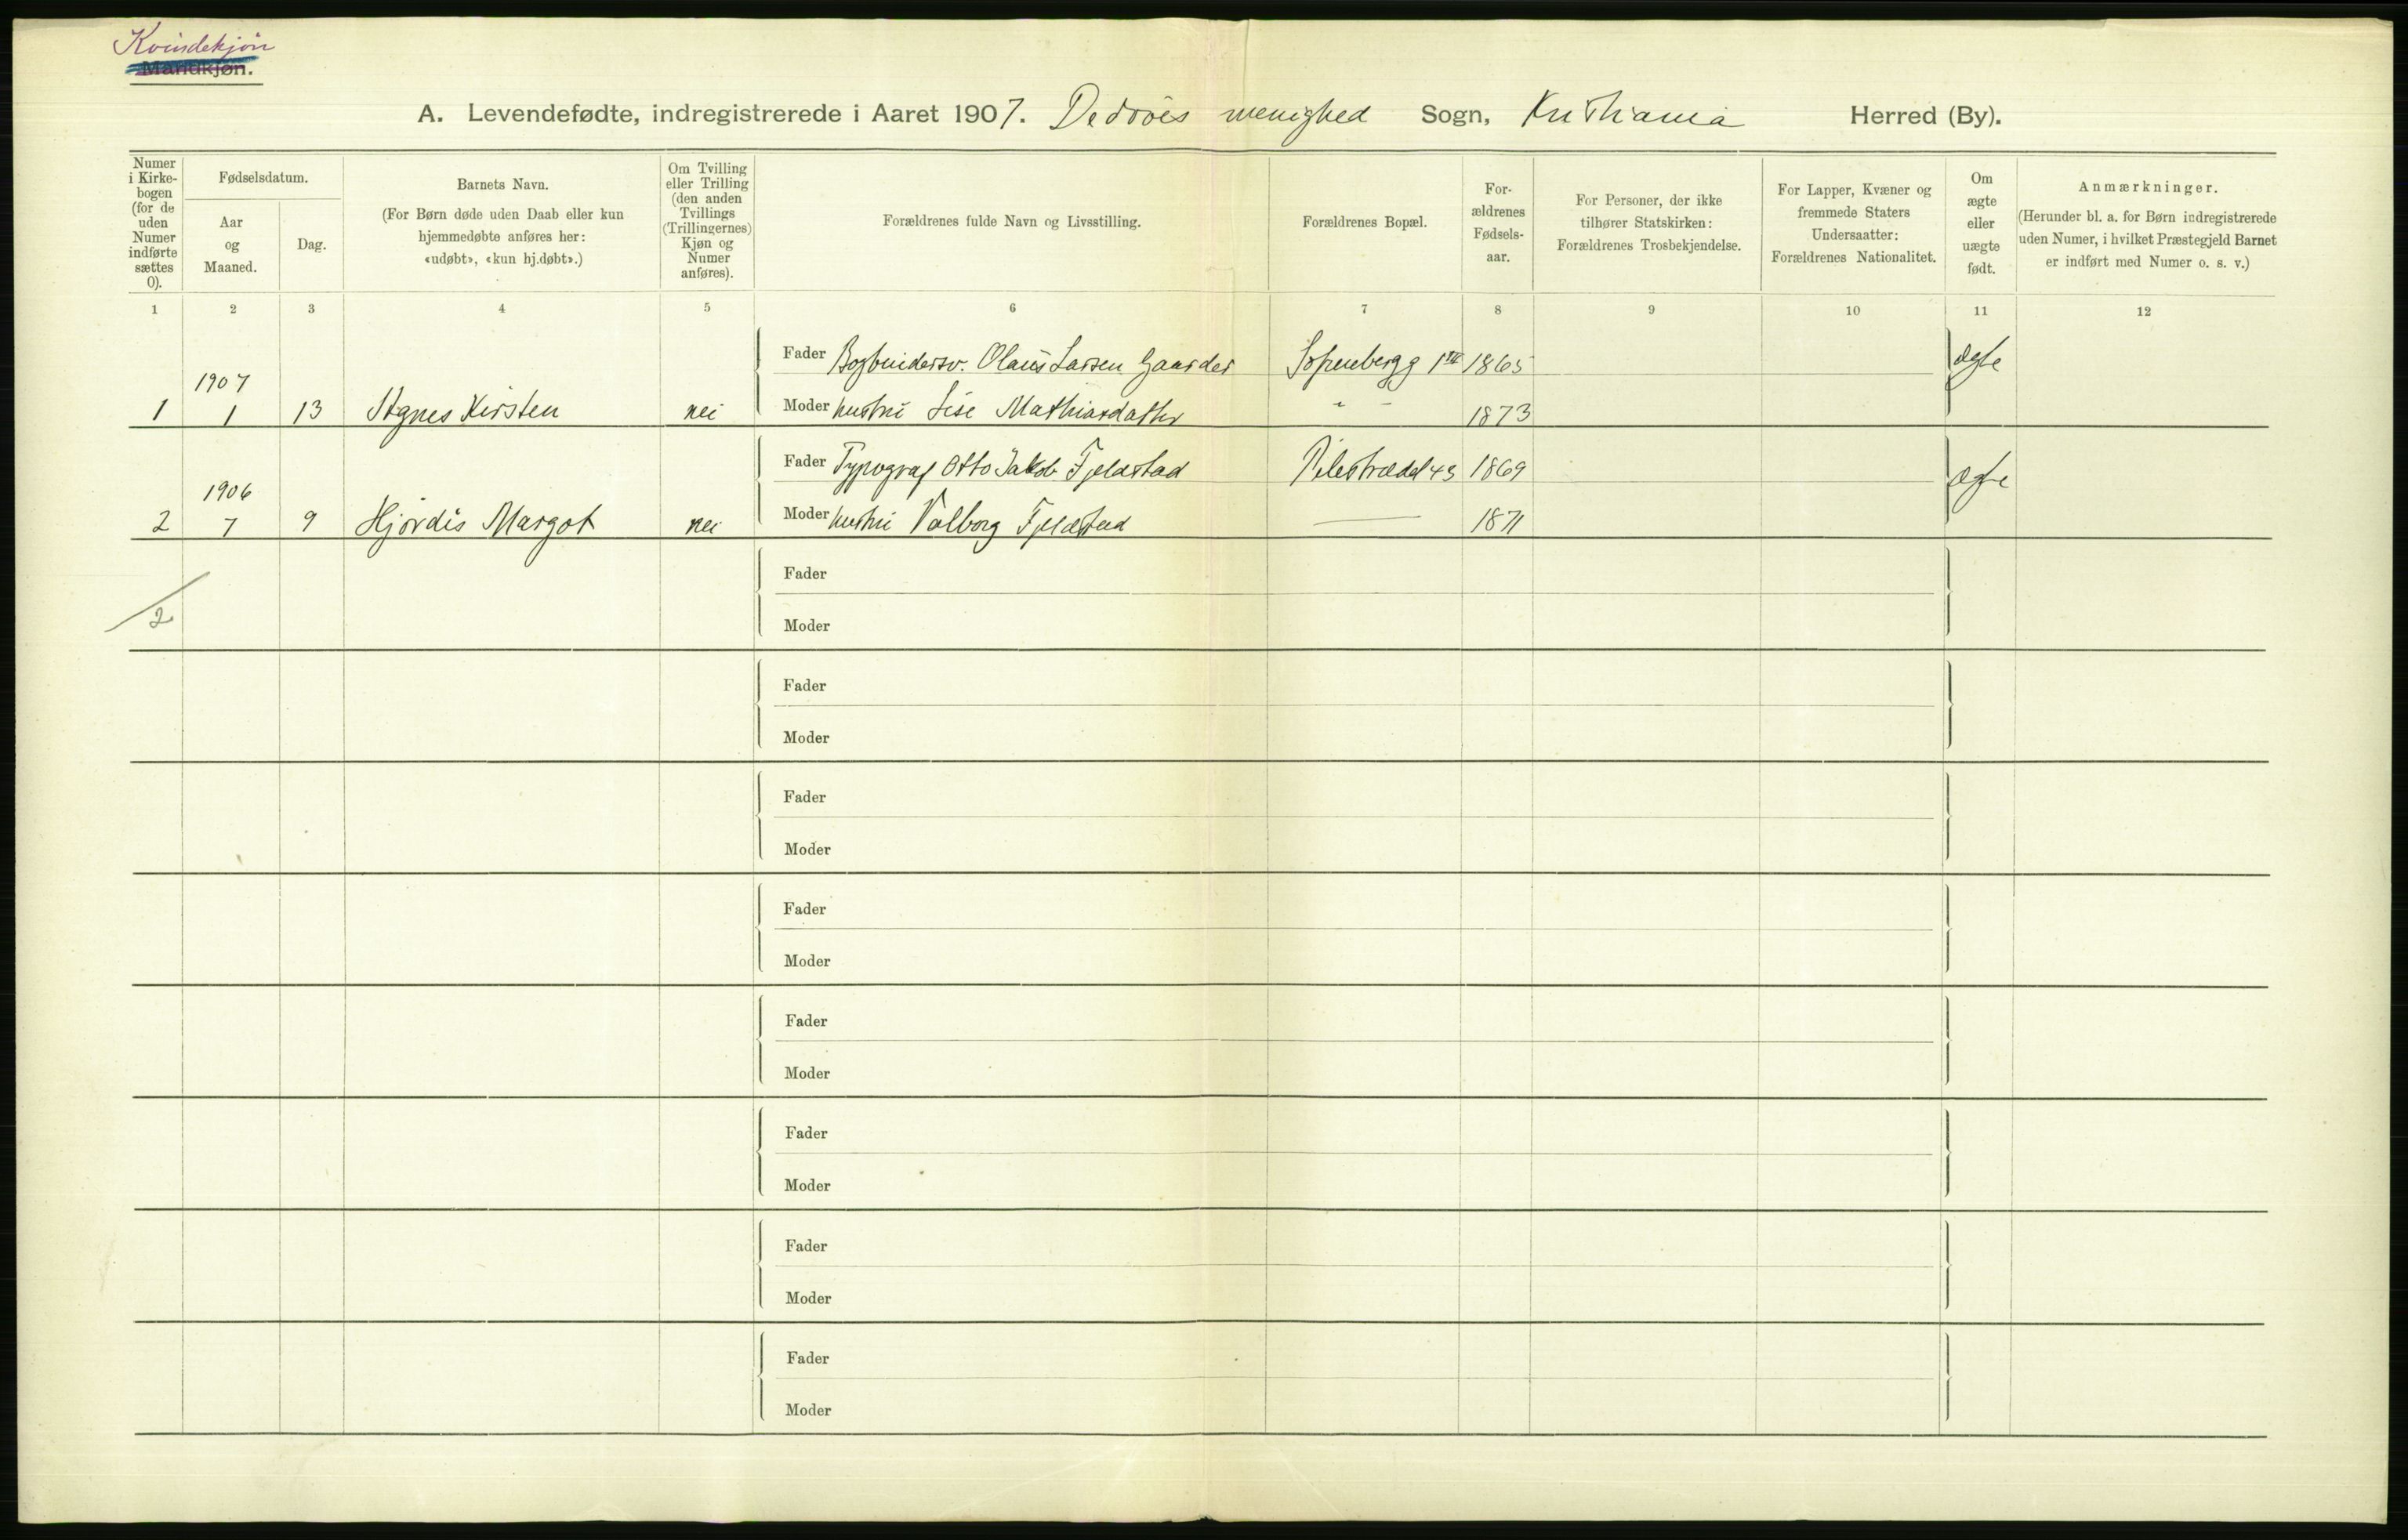 Kvindekjøn
Mandkjøn.
A. Levendefødte, indregistrerede i Aaret 1907. Dedøes menighed Sogn, Kristiania Herred (By).
Numer i Kirkebogen (for de uden Numer indførte sættes 0).
Fødselsdatum.
Aar og Maaned.
Dag.
Barnets Navn.
(For Børn døde uden Daab eller kun hjemmedøbte anføres her: «udøbt», «kun hj.døbt».)
Om Tvilling eller Trilling (den anden Tvillings (Trillingernes) Kjøn og Numer anføres).
Forældrenes fulde Navn og Livsstilling.
Forældrenes Bopæl.
Forældrenes Fødselsaar.
For Personer, der ikke tilhører Statskirken: Forældrenes Trosbekjendelse.
For Lapper, Kvæner og fremmede Staters Undersaatter: Forældrenes Nationalitet.
Om ægte eller uægte født.
Anmærkninger.
(Herunder bl. a. for Børn indregistrerede uden Numer, i hvilket Præstegjeld Barnet er indført med Numer o. s. v.)
1 2 3 4 5 6 7 8 9 10 11 12
Fader Bogbindersv. Olaus Larsen Gaarder 1865 ægte
1907
1 1 13 Agnes Kirsten nei Moder hustru Lise Mathiasdatter " - 1873
Fader Typograf Otto Jakob Fjeldstad Pilestrædet 43 1869 ægte
1906
2 7 9 Hjördis Margot nei Moder hustru Valborg Fjeldstad — 1871
Fader
2
Moder
Fader
Moder
Fader
Moder
Fader
Moder
Fader
Moder
Fader
Moder
Fader
Moder
Fader
Moder